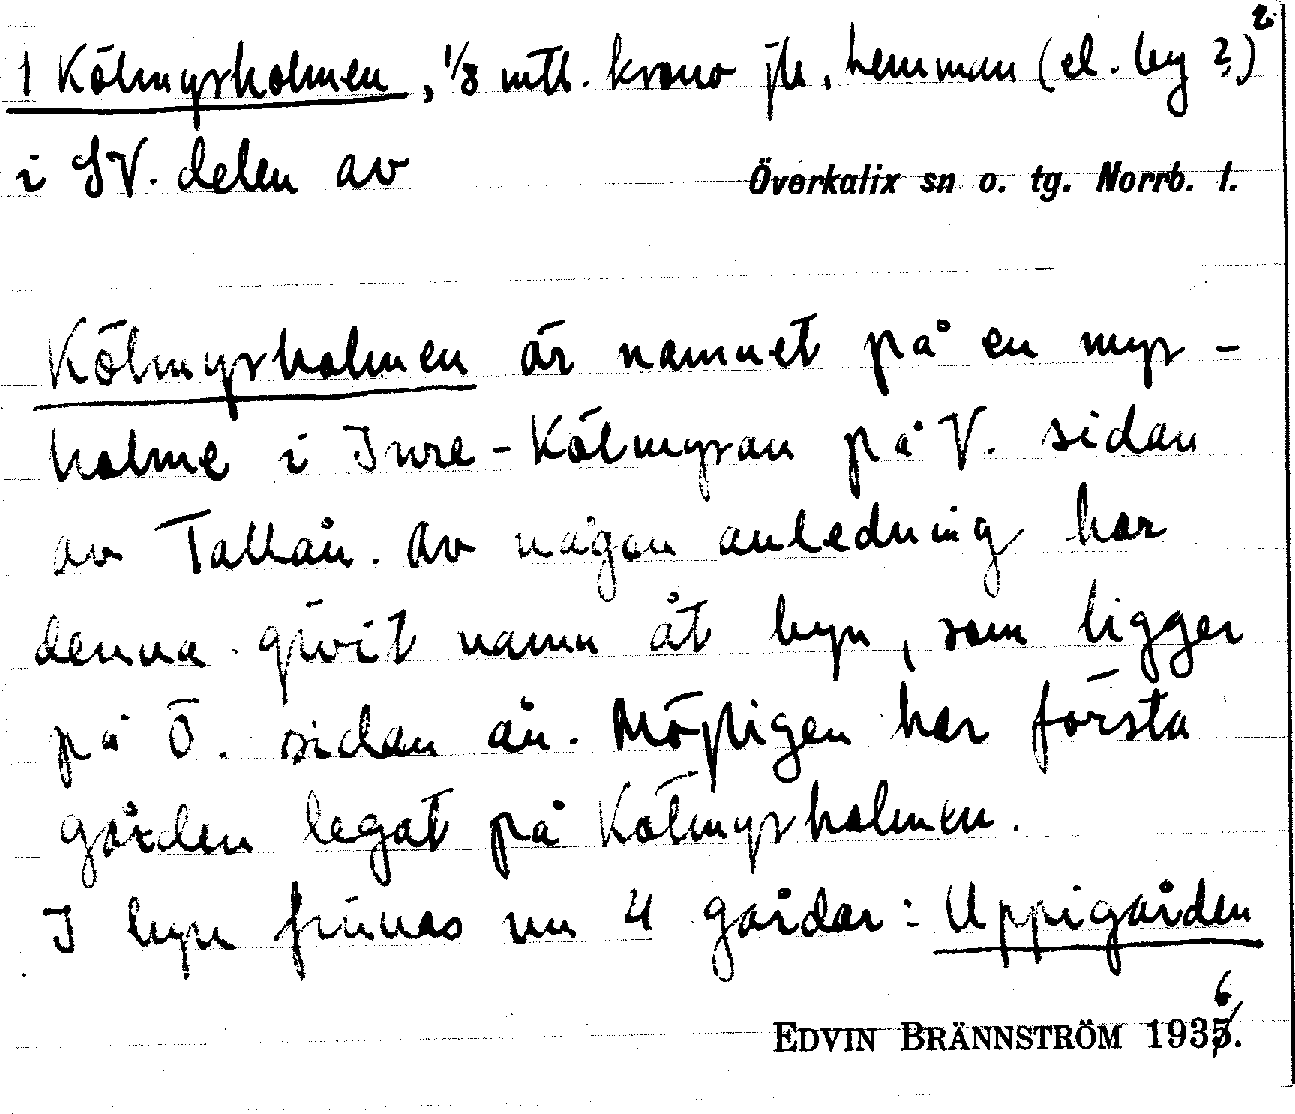 1 Kölmyrholmen, 1/8 mtl. krono jb. hemman (el. by ?) 2
i SV. delen av
Överkalix sn o. tg. Norrb. l.
Kölmyrholmen är namnet på en myr-
holme i Inre-Kölmyran på V. sidan
av Tallån. Av någon anledning har
denna givit namn åt byn, som ligger
på Ö. sidan ån. Möjligen har första
gården legat på Kölmyrholmen.
I byn finnas nu 4 gårdar: Uppigården
EDVIN BRÄNNSTRÖM 1936.